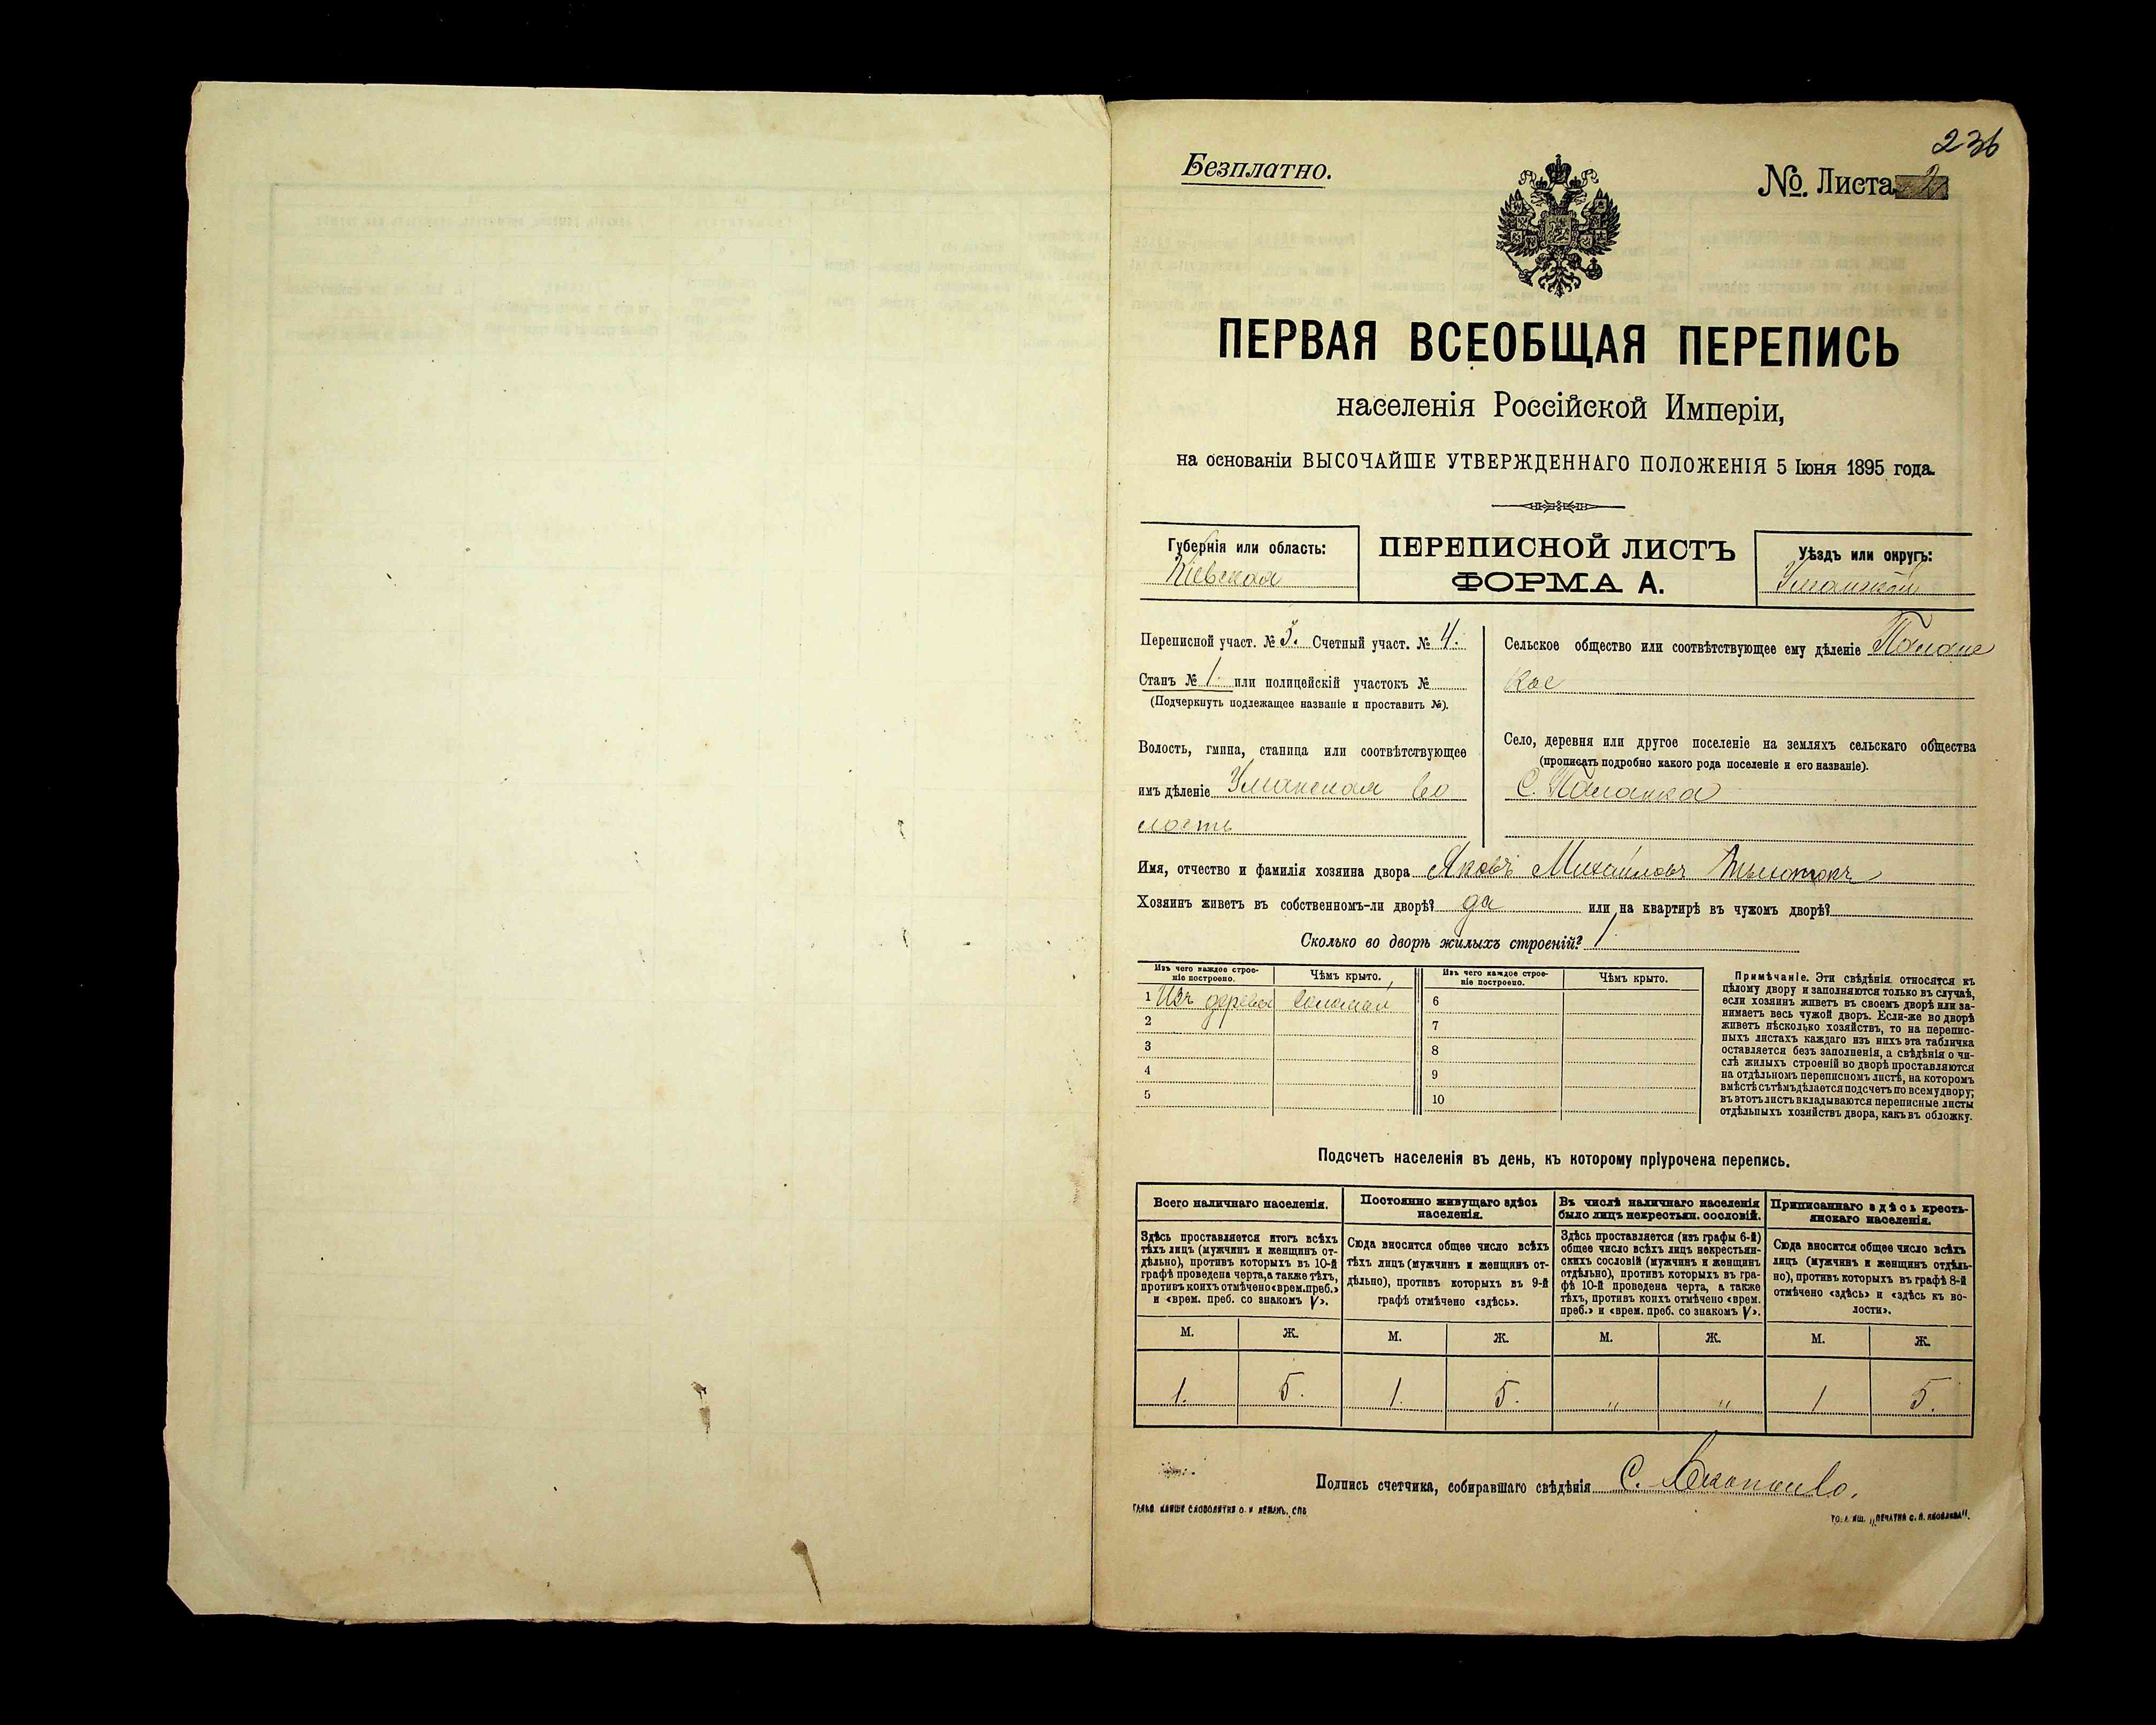 236
Безплатно.
№. Листа 2
ПЕРВАЯ ВСЕОБЩАЯ ПЕРЕПИСЬ
населенія Россійской Имперіи,
на основаніи ВЫСОЧАЙШЕ УТВЕРЖДЕННАГО ПОЛОЖЕНІЯ 5 Іюня 1895 года.
Губернія или область:
Кіевская
ПЕРЕПИСНОЙ ЛИСТЪ
ФОРМА А.
Уѣздъ или округъ:
Уманскій
Переписной участ. № 5. Счетный участ. № 4.
Станъ № 1. или полицейскій участокъ №
(Подчеркнуть подлежащее названіе и проставить №).
Волость, гмина, станица или соотвѣтствующее
имъ дѣленіе Уманская во
лость
Сельское общество или соотвѣтствующее ему дѣленіе Паланс
кое
Село, деревня или другое поселеніе на земляхъ сельскаго общества
(прописать подробно какого рода поселеніе и его названіе).
С. Паланка
Имя, отчество и фамилія хозяина двора Яковъ Михаиловъ
Хозяинъ живетъ въ собственномъ-ли дворѣ? да или на квартирѣ въ чужомъ дворѣ?
Сколько во дворѣ жилыхъ строеній? 1
Изъ чего каждое строе-
ніе построено.
Чѣмъ крыто.
1 Изъ дерева соломой
2
3
4
5
Изъ чего каждое строе-
ніе построено.
Чѣмъ крыто.
6
7
8
9
10
Примѣчаніе. Эти свѣдѣнія относятся къ
цѣлому двору и заполняются только въ случаѣ,
если хозяинъ живетъ въ своемъ дворѣ или за-
нимаетъ весь чужой дворъ. Если-же во дворѣ
живетъ нѣсколько хозяйствъ, то на перепис-
ныхъ листахъ каждаго изъ нихъ эта табличка
оставляется безъ заполненія, а свѣдѣнія о чи-
слѣ жилыхъ строеній во дворѣ проставляются
на отдѣльномъ переписномъ листѣ, на которомъ
вмѣстѣ съ тѣмъ дѣлается подсчетъ по всему двору;
въ этотъ листъ вкладываются переписные листы
отдѣльныхъ хозяйствъ двора, какъ въ обложку.
Подсчетъ населенія въ день, къ которому пріурочена перепись.
Всего наличнаго населенія.
Здѣсь проставляется итогъ всѣхъ
тѣхъ лицъ (мужчинъ и женщинъ от-
дѣльно), противъ которыхъ въ 10-й
графѣ проведена черта, а также тѣхъ,
противъ коихъ отмѣчено «врем. преб.»
и «врем. преб. со знакомъ V».
М. Ж.
1. 5.
Постоянно живущаго здѣсь
населенія.
Сюда вносится общее число всѣхъ
тѣхъ лицъ (мужчинъ и женщинъ от-
дѣльно), противъ которыхъ въ 9-й
графѣ отмѣчено «здѣсь».
М. Ж.
1. 5.
Въ числѣ наличнаго населенія
было лицъ некрестьян. сословій.
Здѣсь проставляется (изъ графы 6-й)
общее число всѣхъ лицъ некрестьян-
скихъ сословій (мужчинъ и женщинъ
отдѣльно), противъ которыхъ въ гра-
фѣ 10-й проведена черта, а также
тѣхъ, противъ коихъ отмѣчено «врем.
преб.» и «врем. преб. со знакомъ V».
М. Ж.
" "
Приписаннаго здѣсь кресть-
янскаго населенія.
Сюда вносится общее число всѣхъ
лицъ (мужчинъ и женщинъ отдѣль-
но), противъ которыхъ въ графѣ 8-й
отмѣчено «здѣсь» и «здѣсь къ во-
лости».
М. Ж.
1 5.
Подпись счетчика, собиравшаго свѣдѣнія С.